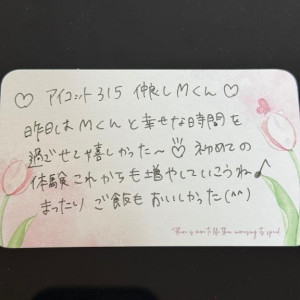 ♡ アイコット315 仲良しMくん ♡
昨日はMくんと幸せな時間を
過ごせて嬉しかった〜 初めての
体験これからも増やしていこうね♪
まったりご飯もおいしかった(^^)